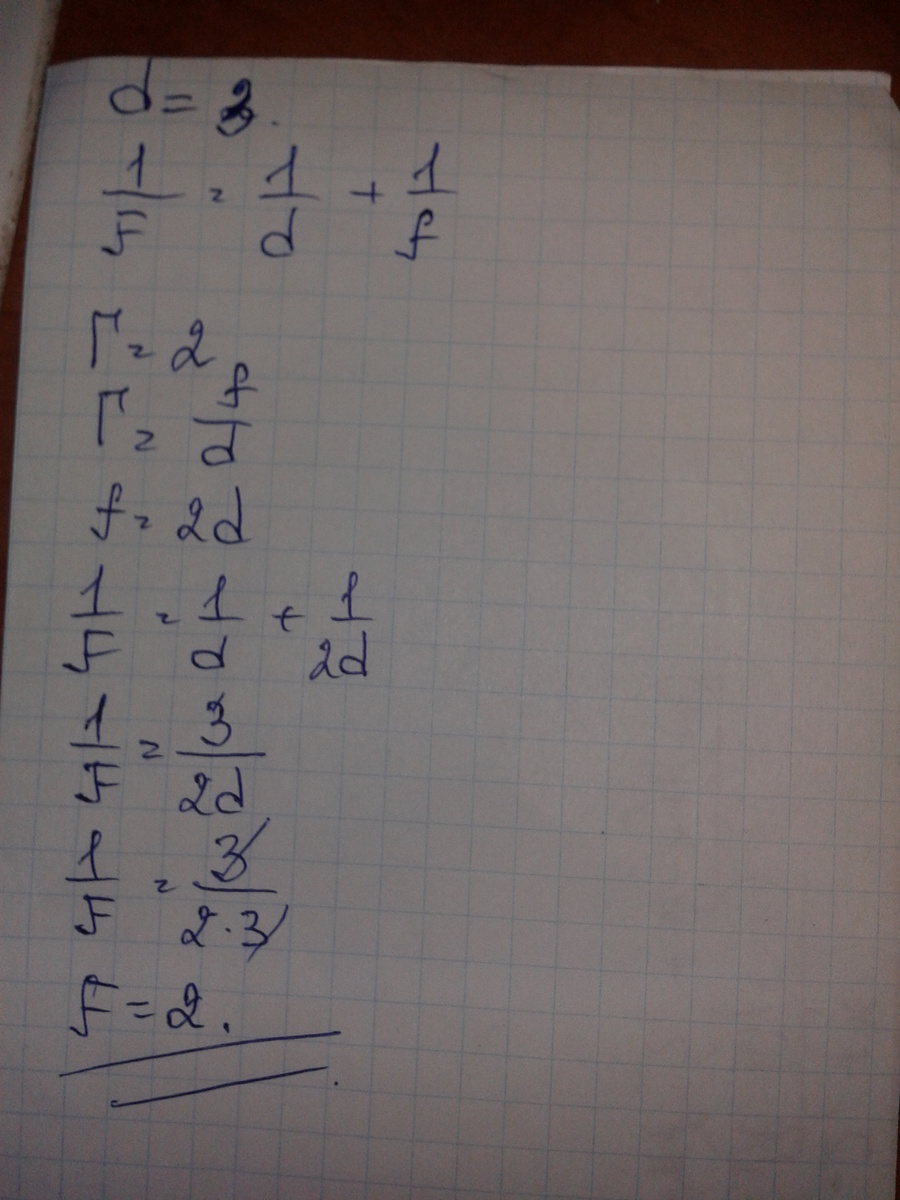 d = 3.
1/F = 1/d + 1/f
Γ = 2
Γ = f/d
f = 2d
1/F = 1/d + 1/2d
1/F = 3/2d
1/F = 3/2·3
F = 2.